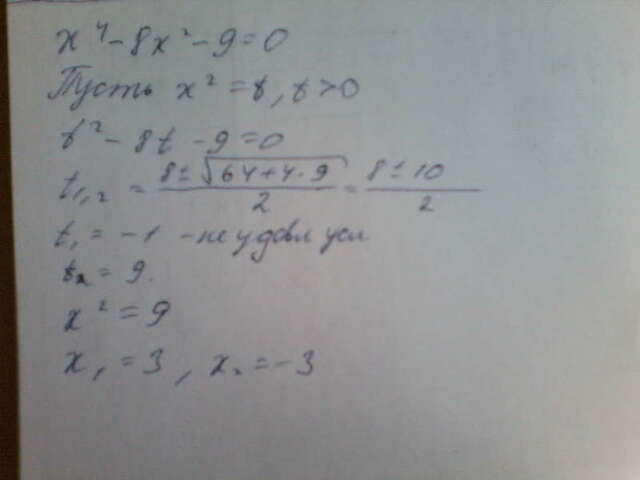 x⁴ - 8x² - 9 = 0
Пусть x² = t, t > 0
t² - 8t - 9 = 0
t₁,₂ = (8 ± √(64+4·9))/2 = (8 ± 10)/2
t₁ = -1 - не удовл усл
t₂ = 9.
x² = 9
x₁ = 3, x₂ = -3